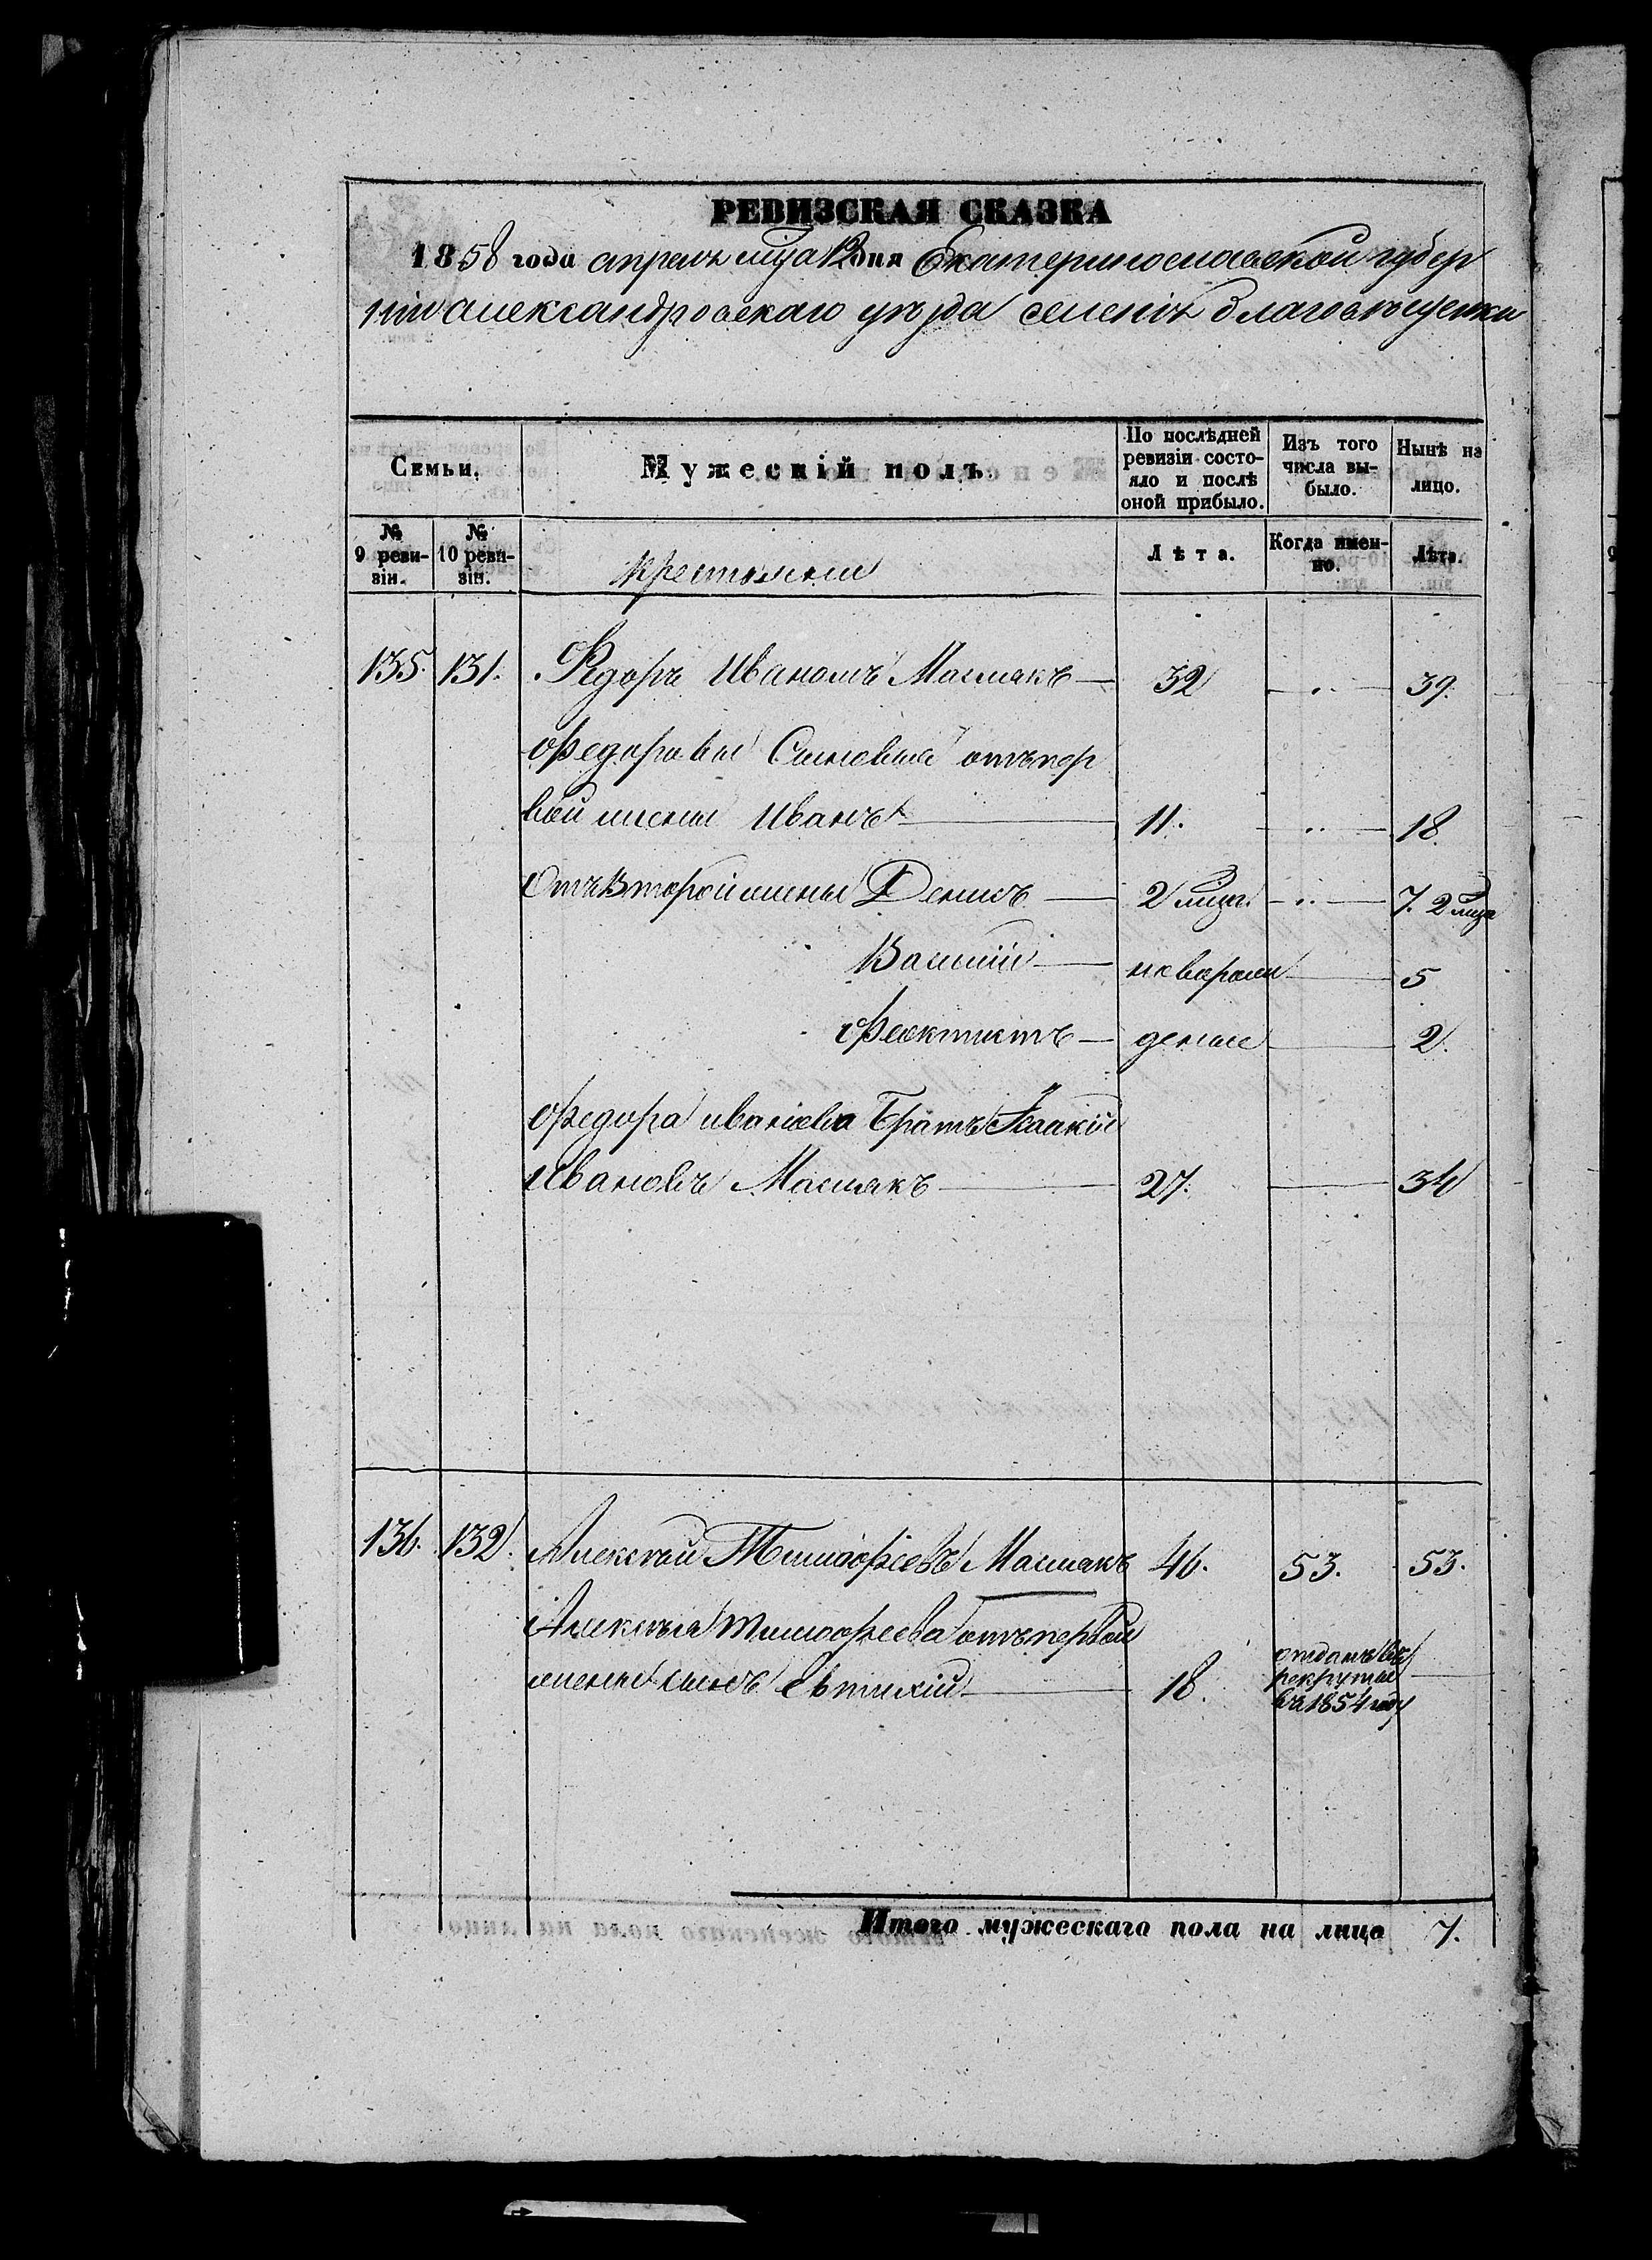 РЕВИЗСКАЯ СКАЗКА
1858 года апреля мца 12 дня Екатеринославской губер
нiи александровскаго уѣзда селенiя Благовѣщенки
Семьи.
Мужескiй полъ.
По послѣдней ревизiи состояло и послѣ оной прибыло.
Изъ того числа выбыло.
Нынѣ на лицо.
№ 9 ревизiи.
№ 10 ревизiи.
крестьяне
Лѣта.
Когда именно.
Лѣта.
135. 131. Федоръ Ивановъ Маслякъ 32 39.
Федоровы Сыновья отъ пер
вой жены Иванъ 11. 18.
Отъ Второй жены Денисъ 2 мца. 7. 2 мца
Василiй новорож 5
Феоктистъ деные 2.
Федора иванова Братъ Iоакiй
Ивановъ Маслякъ 27. 34
136. 132. Алексѣй Тимофеевъ Маслякъ 46. 53. 53.
Алексѣя Тимофеева отъ первой
жены сынъ Евтихiй 18. отданъ въ рекруты въ 1854 году
Итого мужескаго пола на лицо 7.